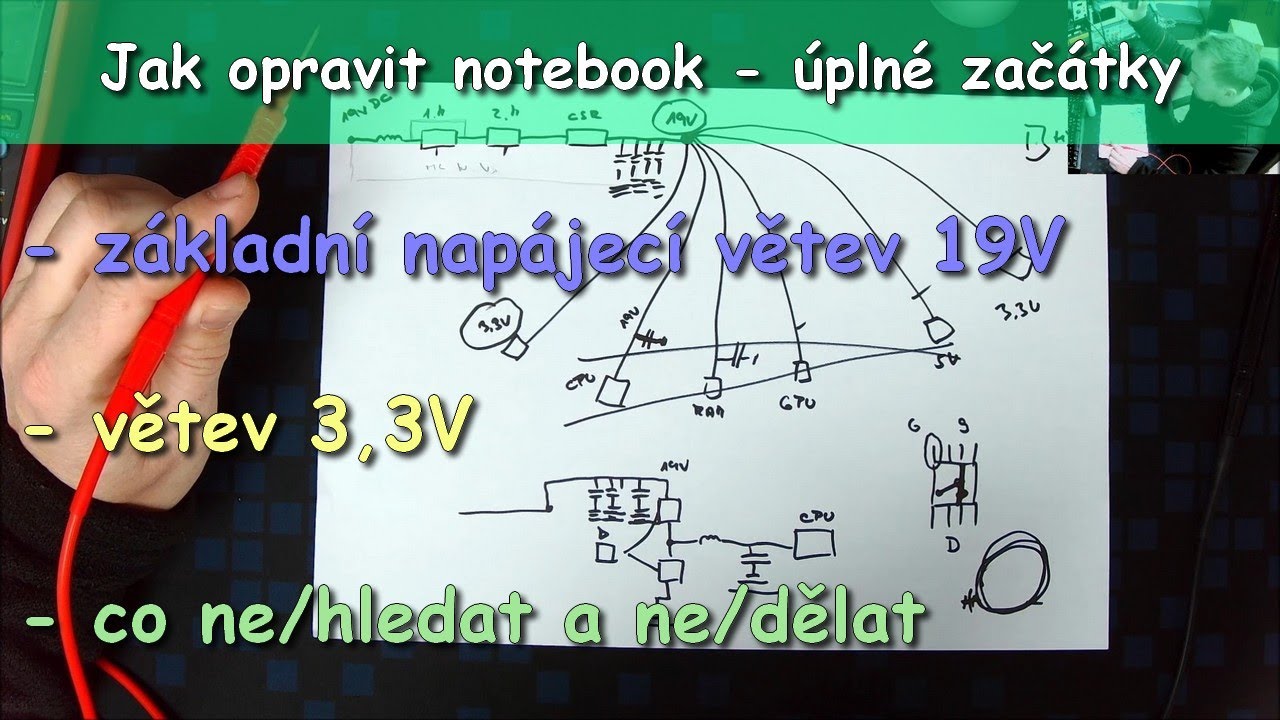 Jak opravit notebook - úplné začátky
19V DC
1.h
2.h
CSR
19V
- základní napájecí větev 19V
3,3V
19V
3,3V
CPU
RAM
GPU
5V
- větev 3,3V
G S
19V
CPU
D
- co ne/hledat a ne/dělat